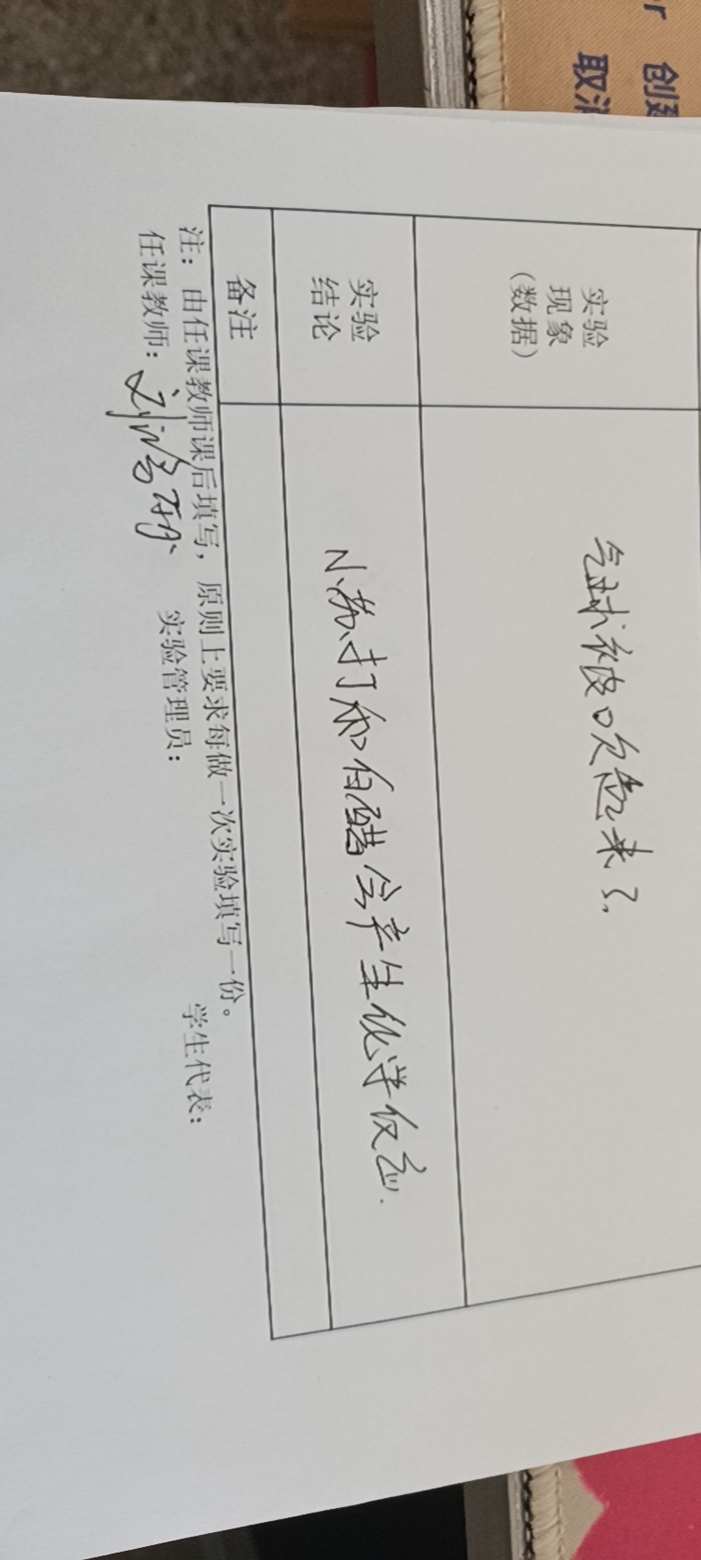 创建
取消
实验
现象
（数据）
气球被吹起来了.
实验
结论
小苏打和白醋会产生化学仅应.
备注
注：由任课教师课后填写，原则上要求每做一次实验填写一份。
任课教师： 实验管理员： 学生代表：